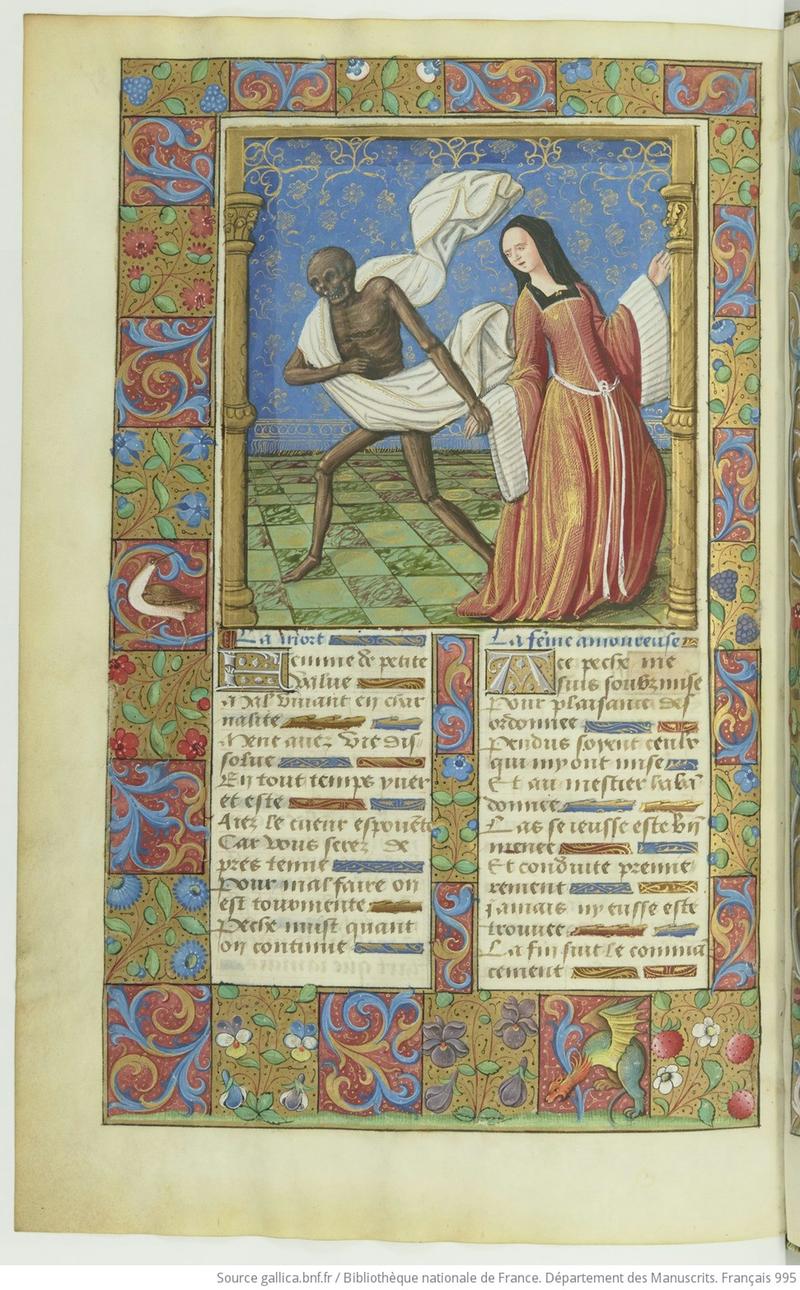 La mort
Femme de petite
value
A mal vivant en char
nalite
Mene avez vie dis
solue
En tout temps yver
et este
Aiez le cueur espovẽte
Car vous serez de
pres tenue
Pour mal faire on
est tourmente
Peche nuist quant
on continue
La fẽme amoureuse
A ce peche me
suis soubzmise
Pour plaisance des
ordonnee
Pendus soyent ceulx
qui my ont mise
Et au mestier habã
donnee
Las se ieusse este biẽ
menee
Et conduite premie
rement
Jamais ny eusse este
trouvee
La fin suit le commã
cement
Source gallica.bnf.fr / Bibliothèque nationale de France. Département des Manuscrits. Français 995